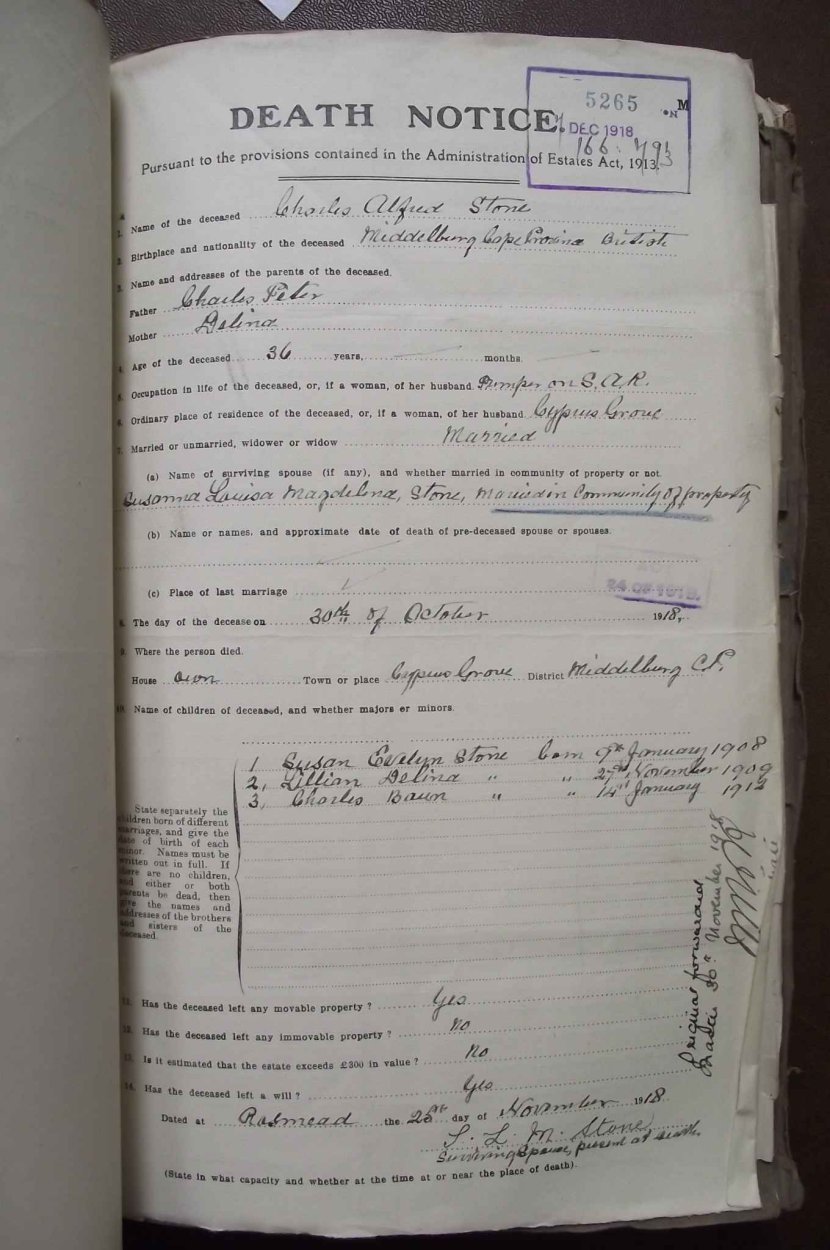 DEATH NOTICE.
5265
M
ON
7 DEC 1918
166
Pursuant to the provisions contained in the Administration of Estates Act, 1913.
1. Name of the deceased Charles Alfred Stone
2. Birthplace and nationality of the deceased Middelburg Cape Province British
3. Name and addresses of the parents of the deceased.
Father Charles Peter
Mother Delina
4. Age of the deceased 36 years, months.
5. Occupation in life of the deceased, or, if a woman, of her husband. Pumper on S.A.R.
6. Ordinary place of residence of the deceased, or, if a woman, of her husband. Cyprus Grove
7. Married or unmarried, widower or widow Married
(a) Name of surviving spouse (if any), and whether married in community of property or not.
Susanna Louisa Magdelena, Stone, Married in Community of property
(b) Name or names, and approximate date of death of pre-deceased spouse or spouses.
(c) Place of last marriage
8. The day of the decease on 30th of October 1918.
9. Where the person died.
House own Town or place Cyprus Grove District Middelburg C.P.
10. Name of children of deceased, and whether majors or minors.
1 Susan Evelyn Stone born 9th January 1908
2, Lillian Delina " " 27th November 1909
3, Charles " " 14th January
State separately the
children born of different
marriages, and give the
date of birth of each
minor. Names must be
written out in full. If
there are no children,
and either or both
parents be dead, then
give the names and
addresses of the brothers
and sisters of the
deceased.
Original forwarded
Master 30th November 1918
11. Has the deceased left any movable property? Yes
12. Has the deceased left any immovable property? No
13. Is it estimated that the estate exceeds £300 in value? No
14. Has the deceased left a will? Yes
Dated at Rosmead the 25th day of November 1918
S. L. M. Stone
Surviving Spouse, present at death.
(State in what capacity and whether at the time at or near the place of death).